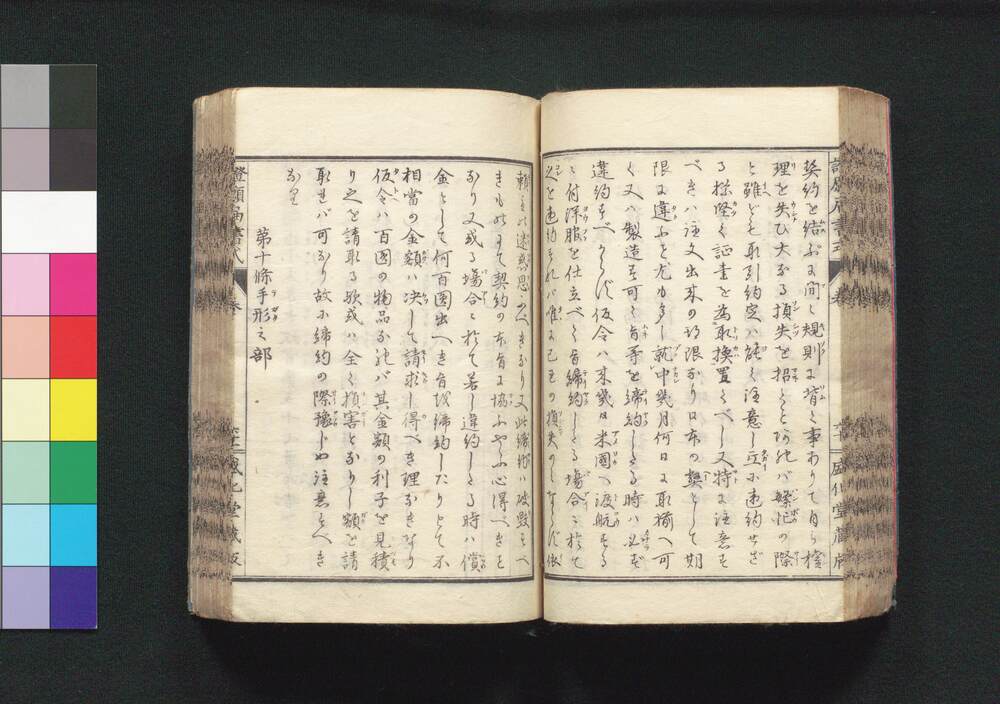 契約を結ぶに間〻規則に背く事ありて自ら権
理を失ひ大なる損失を招くことあれバ繁忙の際
と雖ども取引約定ハ能く注意し互に違約せざ
る様堅く証書を為取換置くべし又特に注意す
べきハ注文出来の期限なり日布の契として期
限に違ふこと尤力多し就中幾月何日に取揃へ可
く又ハ製造す可く旨等を締約しとる時ハ必ず
違約すべからず仮令ハ来幾日米國へ渡航する
に付洋服を仕立べく旨締約しとる場合に於て
之を違約すれバ唯に己の損失のミならず依
頼主の迷惑思ふべきなり又此締約ハ破毀すべ
きものにて契約の本旨に協ふやふ心得べきを
なり又或る場合に於て若し違約しとる時ハ償
金として何百圓出へき旨或締約したりとて不
相當の金額ハ决して請求し得べき理なきなり
仮令ハ百圓の物品なれバ其金額の利子を見積
り之を請取る歟或ハ全く損害となりし額を請
取れバ可なり故に締約の際豫じめ注意すべき
なり
第十條手形之部
證願届書式
巻
盛化堂蔵版